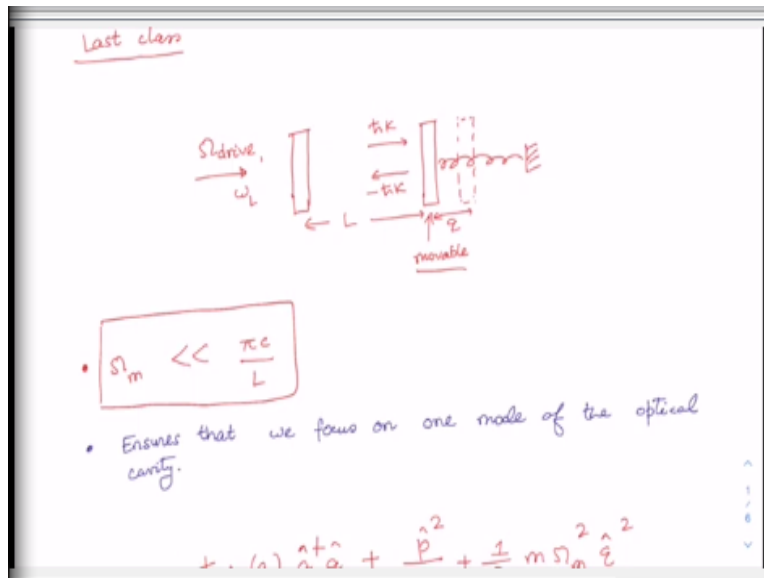 Last class
Ω drive,
ω_L
ħk
-ħk
← L →
q
movable
• Ω_m << πc/L
• Ensures that we focus on one mode of the optical
cavity.
â†â + p̂² + 1 mΩ_m² q̂²
1
/
6